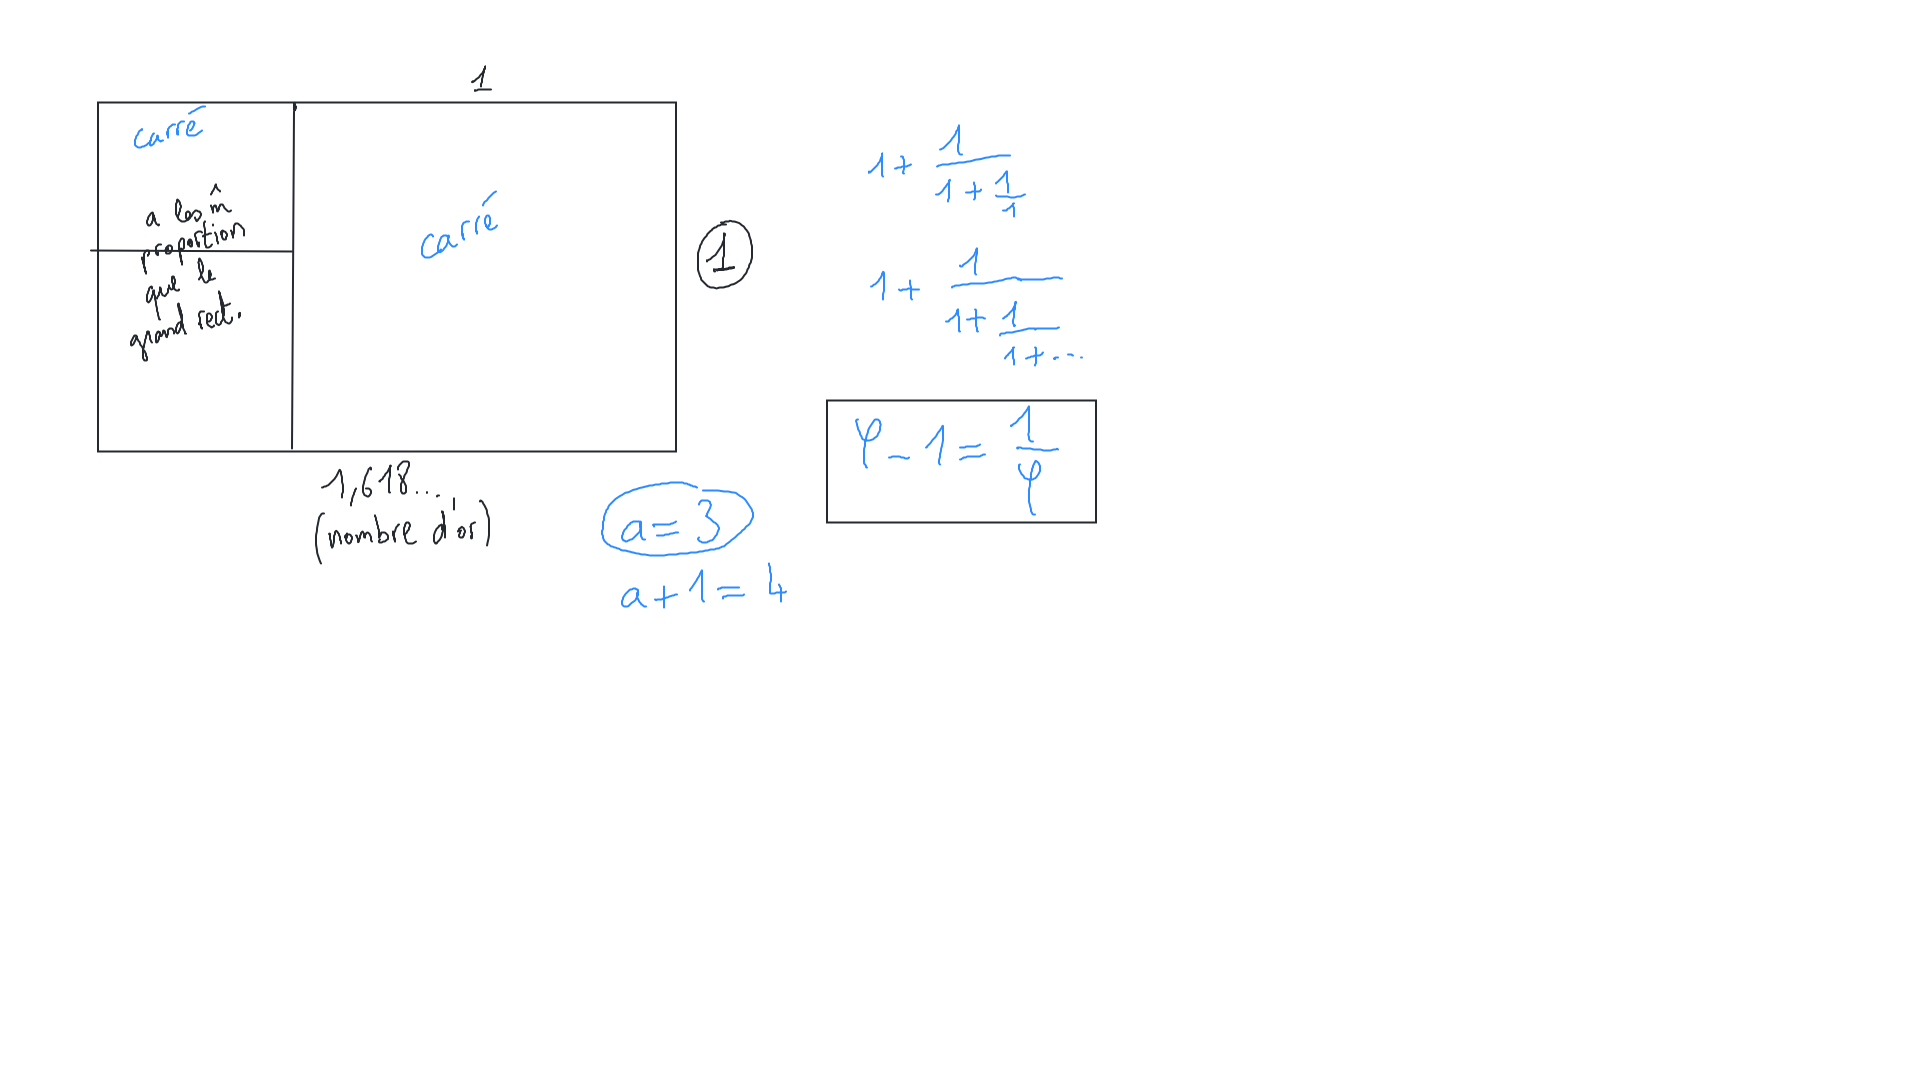 1
carré
a les m̂
proportion
que le
grand rect.
carré
1
1,618...
(nombre d'or)
a = 3
a + 1 = 4
1 + 1/(1 + 1/1)
1 + 1/(1 + 1/(1 + ...
φ - 1 = 1/φ